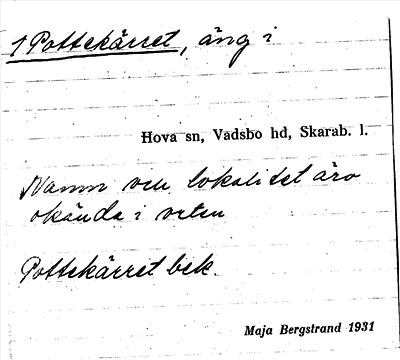 1 Pottekärret, äng i
Hova sn, Vadsbo hd, Skarab. l.
Namn och lokalitet äro
okända i orten
Pottekärret bek.
Maja Bergstrand 1931